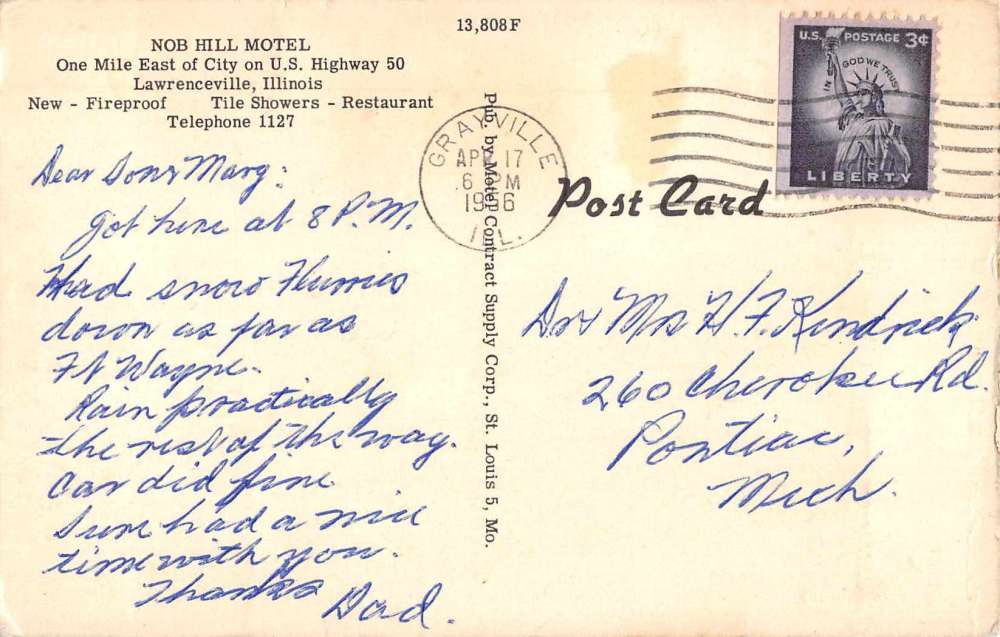 13,808F
NOB HILL MOTEL
One Mile East of City on U.S. Highway 50
Lawrenceville, Illinois
New - Fireproof Tile Showers - Restaurant
Telephone 1127
Dear Son & Marg:
Got here at 8 P.M.
Had snow Flurries
down as far as
Ft Wayne.
Rain practically
the rest of the way.
Car did fine
Sure had a nice
time with you.
Thanks
Dad.
Pub. by Motel Contract Supply Corp., St. Louis 5, Mo.
GRAYVILLE
APR 17
6 M
1956
ILL.
U.S. POSTAGE 3¢
IN GOD WE TRUST
LIBERTY
Post Card
Dr & Mrs H. F. Kendrick
260 Cherokee Rd.
Pontiac,
Mich.